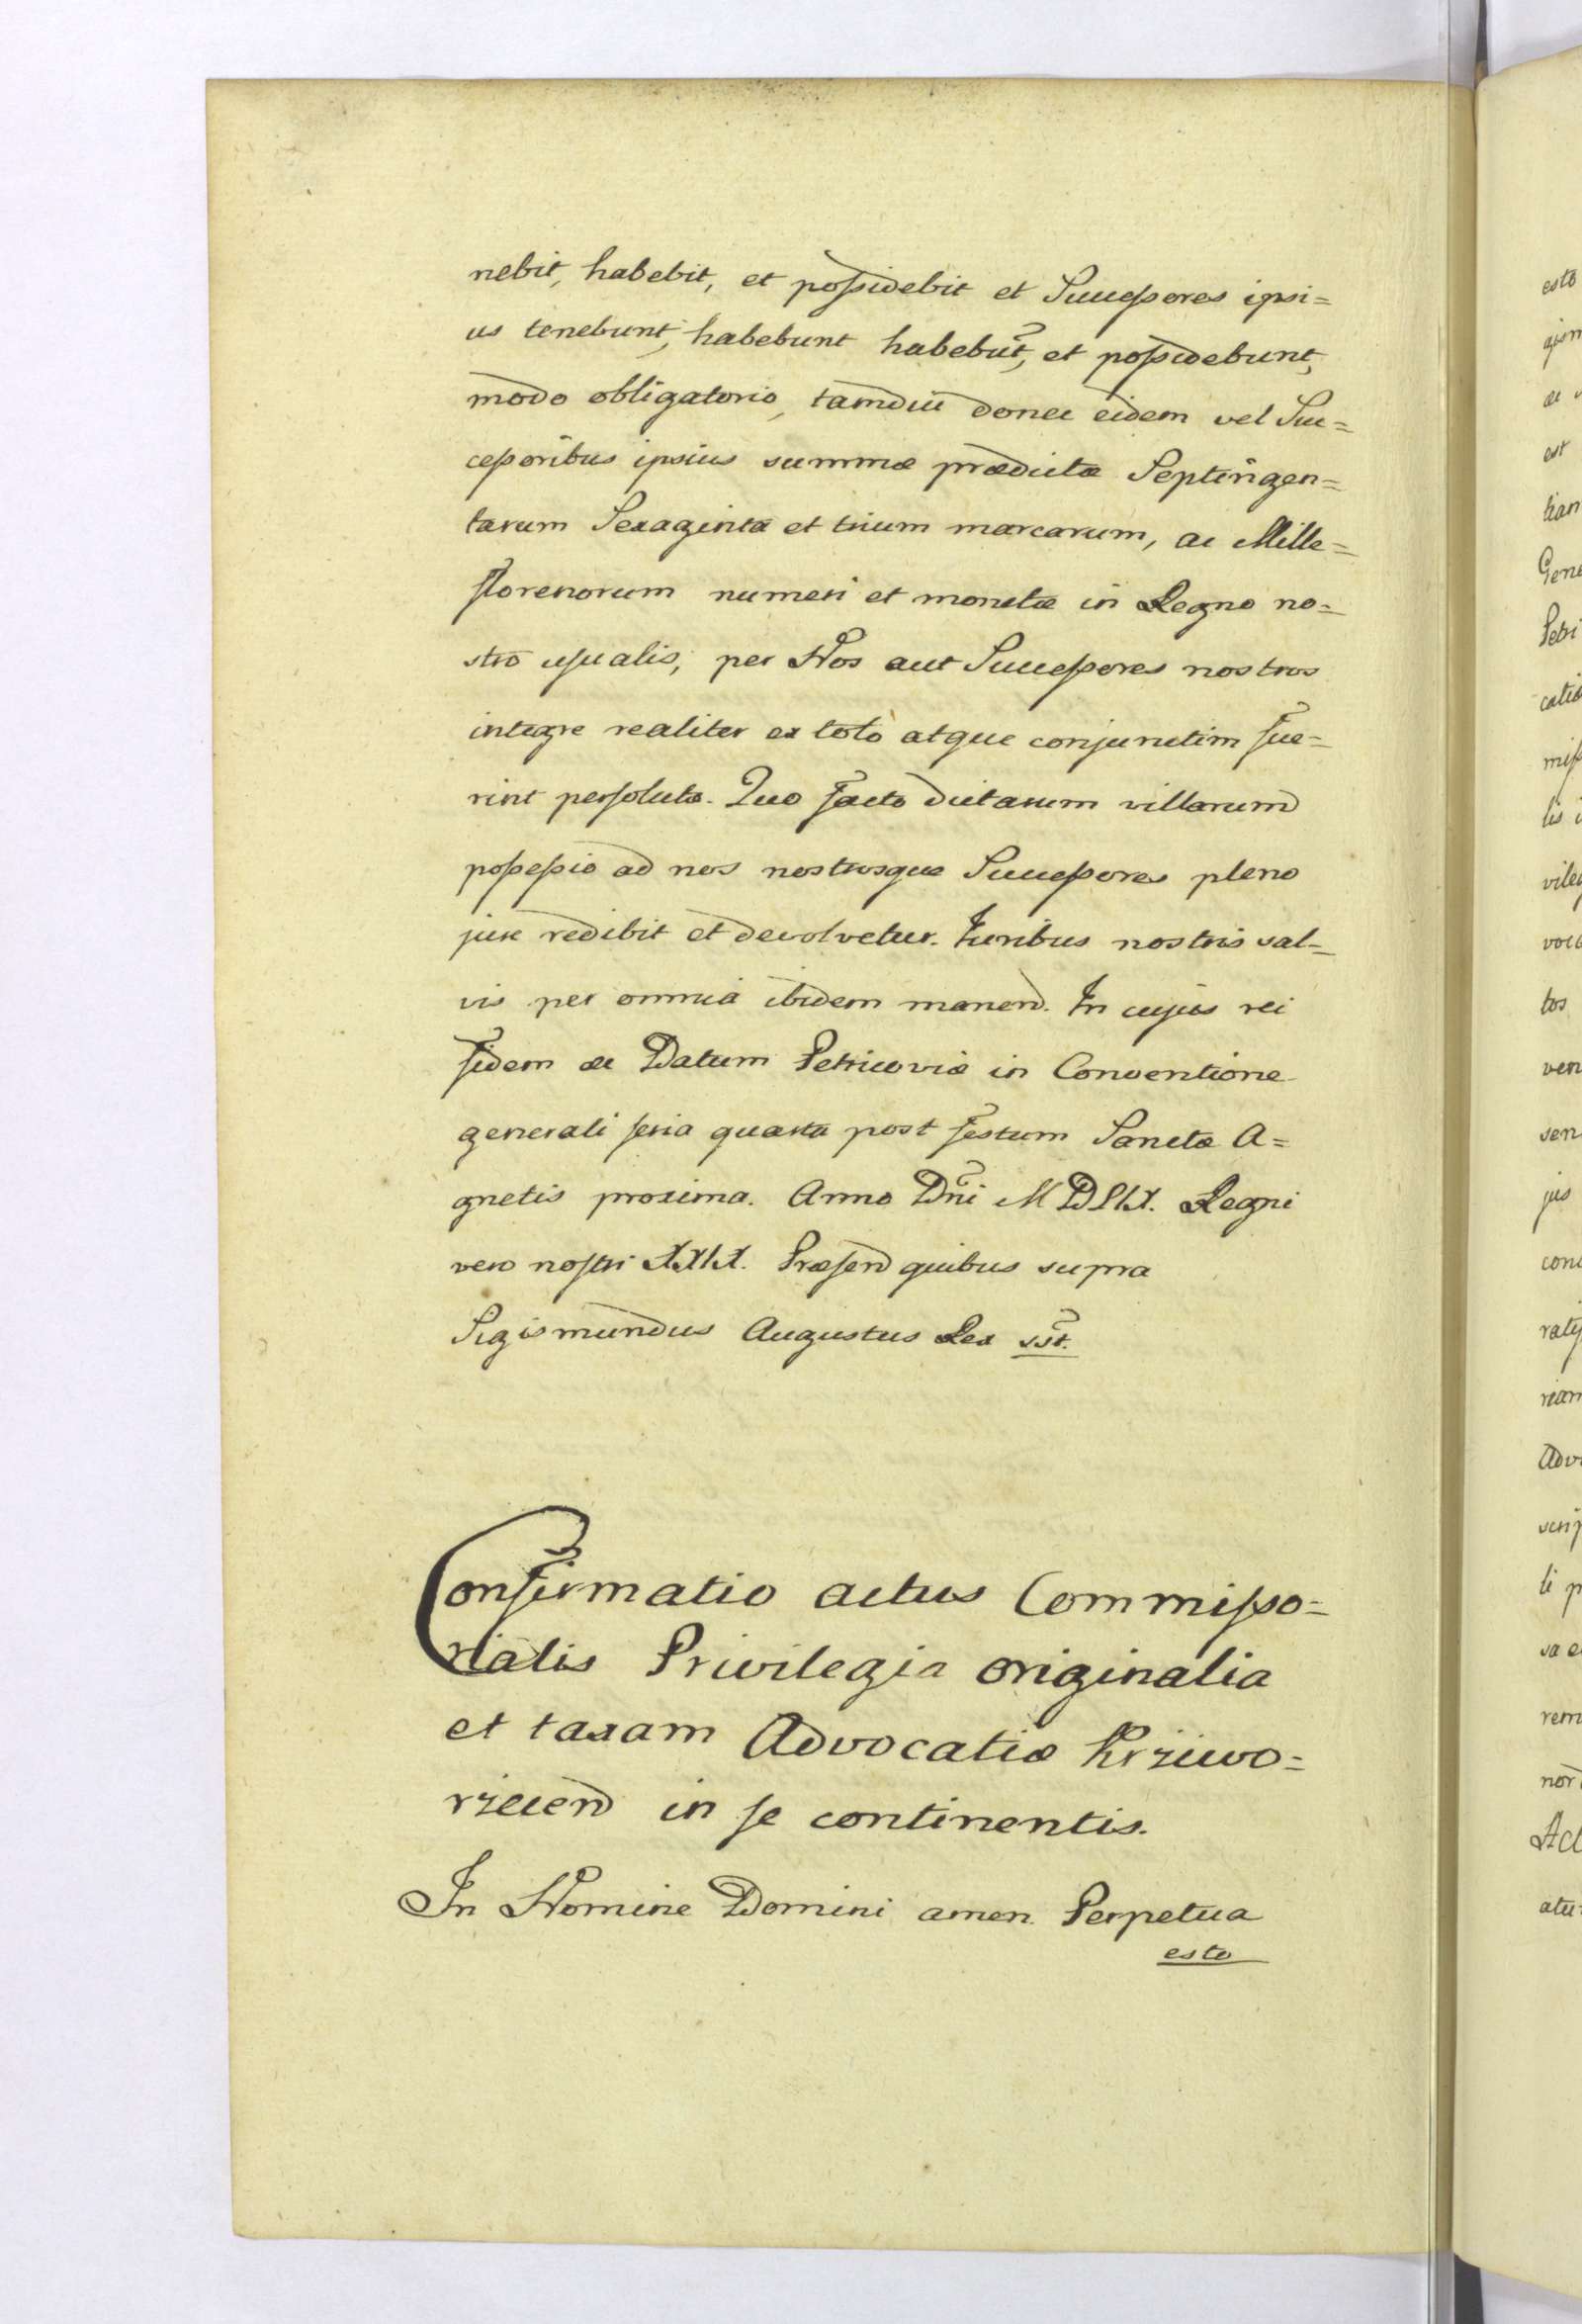 nebit, habebit, et possidebit et Successores ipsi=
us tenebunt, habebunt habebũt, et possidebunt,
modo obligatorio, tamdiu donec eidem vel Suc=
cessoribus ipsius summæ prædictæ Septingen=
tarum Sexaginta et trium marcarum, ac Mille=
florenorum numeri et monetæ in Regno no=
stro usualis, per Nos aut Successores nostros
integre realiter ex toto atque conjunctim fue=
rint persoluta. Quo facto dictarum villarum
possessio ad nos nostrosque Successores pleno
jure redibit et devolvetur. Juribus nostris sal=
vis per omnia ibidem manend. In cujus rei
fidem &c Datum Petricoviæ in Conventione
generali feria quarta post festum Sanctæ A=
gnetis proxima. Anno Dñi MDLIX. Regni
vero nostri XXIX. Præsend quibus supra
Sigismundus Augustus Rex sst.
Confirmatio actus Commisso=
rialis Privilegia originalia
et taxam Advocatiæ Krziwo=
rzecend in se continentis.
In Nomine Domini amen. Perpetua
esto